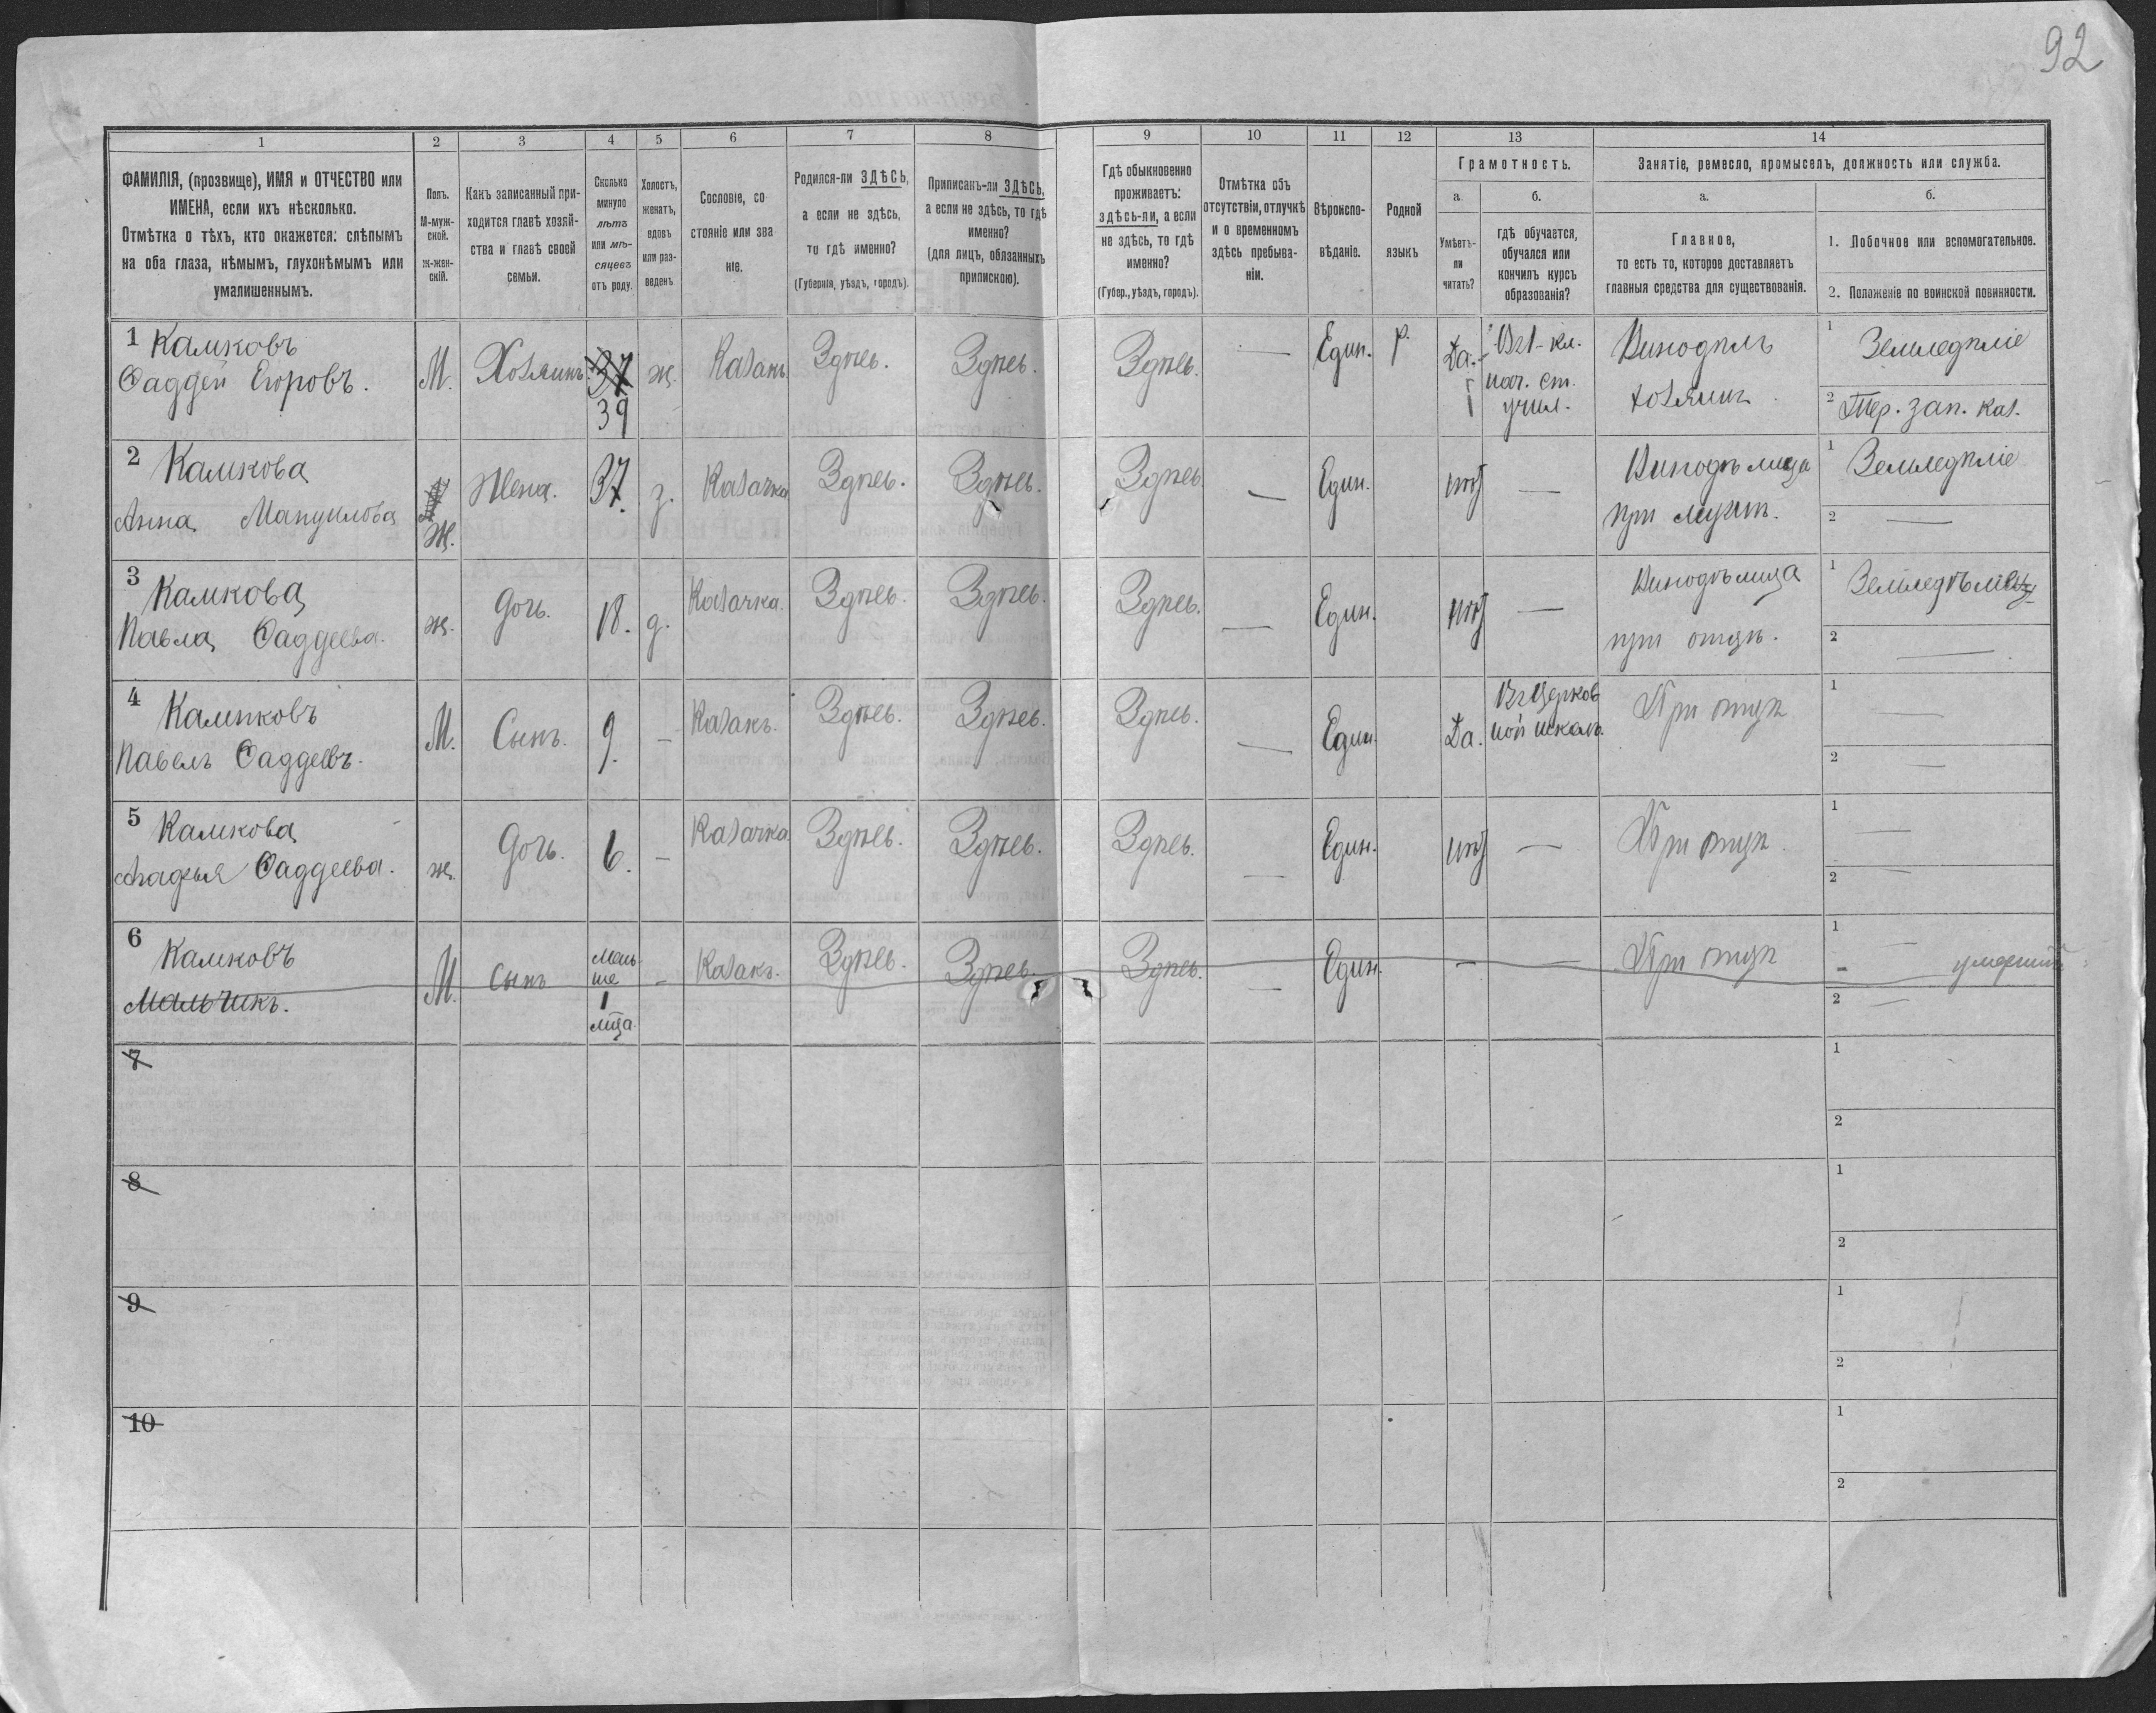 92
1 2 3 4 5 6 7 8 9 10 11 12 13 14
ФАМИЛІЯ, (прозвище), ИМЯ и ОТЧЕСТВО или
ИМЕНА, если ихъ нѣсколько.
Отмѣтка о тѣхъ, кто окажется: слѣпымъ
на оба глаза, нѣмымъ, глухонѣмымъ или
умалишеннымъ.
Полъ.
М-муж-
ской.
Ж-жен-
скій.
Какъ записанный при-
ходится главѣ хозяй-
ства и главѣ своей
семьи.
Сколько
минуло
лѣтъ
или мѣ-
сяцевъ
отъ роду.
Холостъ,
женатъ,
вдовъ
или раз-
веденъ
Сословіе, со
стояніе или зва
ніе.
Родился-ли ЗДѢСЬ,
а если не здѣсь,
то гдѣ именно?
(Губернія, уѣздъ, городъ).
Приписанъ-ли ЗДѢСЬ,
а если не здѣсь, то гдѣ
именно?
(для лицъ, обязанныхъ
припискою).
Гдѣ обыкновенно
проживаетъ:
здѣсь-ли, а если
не здѣсь, то гдѣ
именно?
(Губер., уѣздъ, городъ).
Отмѣтка объ
отсутствіи, отлучкѣ
и о временномъ
здѣсь пребыва-
ніи.
Вѣроиспо-
вѣданіе.
Родной
языкъ
Грамотность.
а.
Умѣетъ-
ли
читать?
б.
гдѣ обучается,
обучался или
кончилъ курсъ
образованія?
Занятіе, ремесло, промыселъ, должность или служба.
а.
Главное,
то есть то, которое доставляетъ
главныя средства для существованія.
б.
1. Побочное или вспомогательное.
2. Положеніе по воинской повинности.
1 Камковъ
Фаддей Егоровъ.
М.
Хозяинъ
37
39
ж.
Казакъ
Здѣсь.
Здѣсь.
Здѣсь.
—
Един.
Р.
Да.
Въ 1-кл.
нач. ст.
учил.
Винодѣлъ
хозяинъ.
1 Земледѣліе
2 Тер. зап. каз.
2 Камкова
Анна Мануилова
Ж.
Жена.
37.
з.
Казачка
Здѣсь.
Здѣсь.
Здѣсь
—
Един.
нѣт
—
Винодѣлица
при мужѣ.
1 Земледѣліе
2 —
3 Камкова
Павла Фаддеева.
ж.
Дочь.
18.
д.
Казачка.
Здѣсь.
Здѣсь.
Здѣсь.
—
Един.
нѣт
—
Винодѣлица
при отцѣ.
1
2 —
4 Камковъ
Павелъ Фаддеевъ.
М.
Сынъ.
9.
—
Казакъ.
Здѣсь.
Здѣсь.
Здѣсь.
—
Един.
Да.
Въ церков
ной школѣ.
При отцѣ
1 —
2 —
5 Камкова
Агафья Фаддеева.
ж.
Дочь.
6.
—
Казачка
Здѣсь.
Здѣсь.
Здѣсь.
—
Един.
нѣт
—
При отцѣ.
1 —
2 —
6 Камковъ
Мальчикъ.
М.
Сынъ
мень-
ше
1
мца.
—
Казакъ.
Здѣсь.
Здѣсь.
Здѣсь.
—
Един.
—
—
При отцѣ
1 —
умершій
2 —
7
1
2
8
1
2
9
1
2
10
1
2